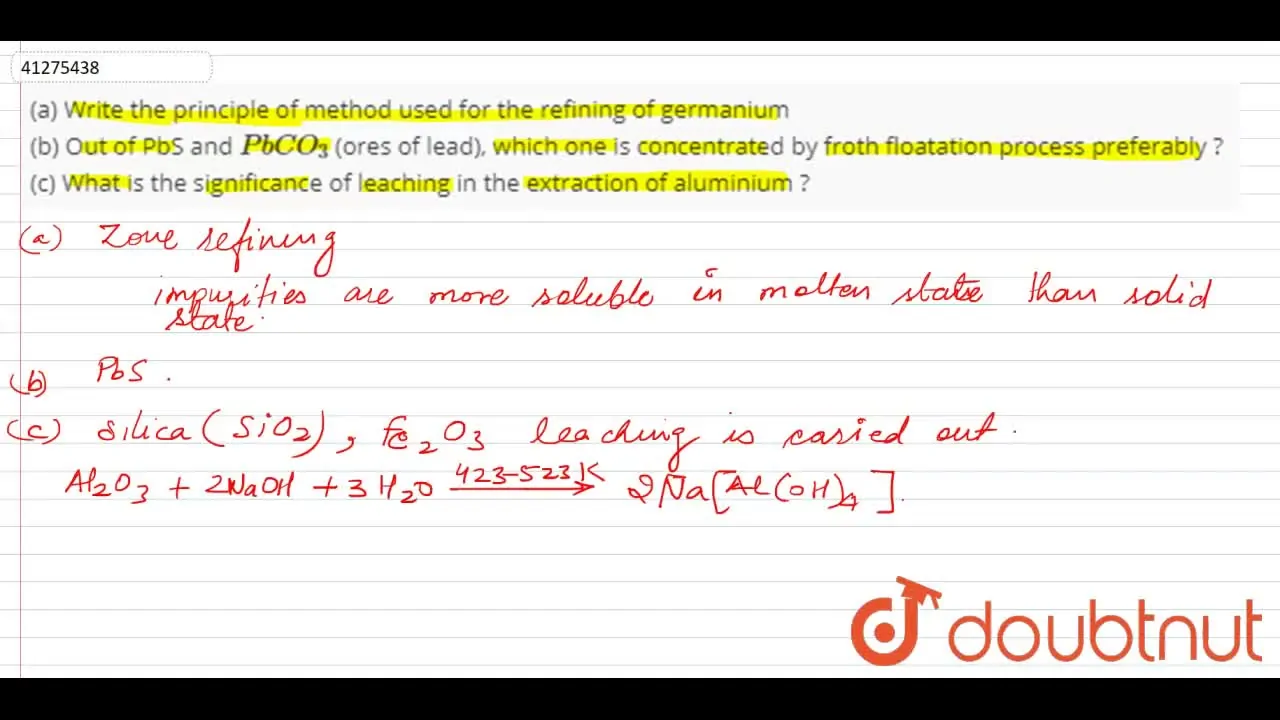 41275438
(a) Write the principle of method used for the refining of germanium
(b) Out of PbS and PbCO₃ (ores of lead), which one is concentrated by froth floatation process preferably ?
(c) What is the significance of leaching in the extraction of aluminium ?
(a) Zone refining
impurities are more soluble in molten state than solid
state.
(b) PbS.
(c) silica (SiO₂), Fe₂O₃ leaching is caried out.
Al₂O₃ + 2NaOH + 3H₂O 423-523K → 2Na[Al(OH)₄].
doubtnut